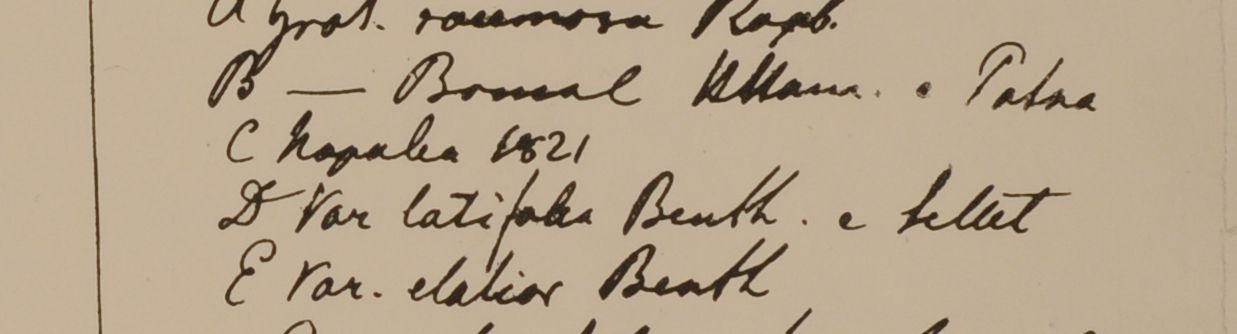 A Grat. racemosa Roxb.
B — Bomal Uttam. e Patna
C Napalia 1821
D Var latifolia Benth. e Sillet
E Var. elatior Benth